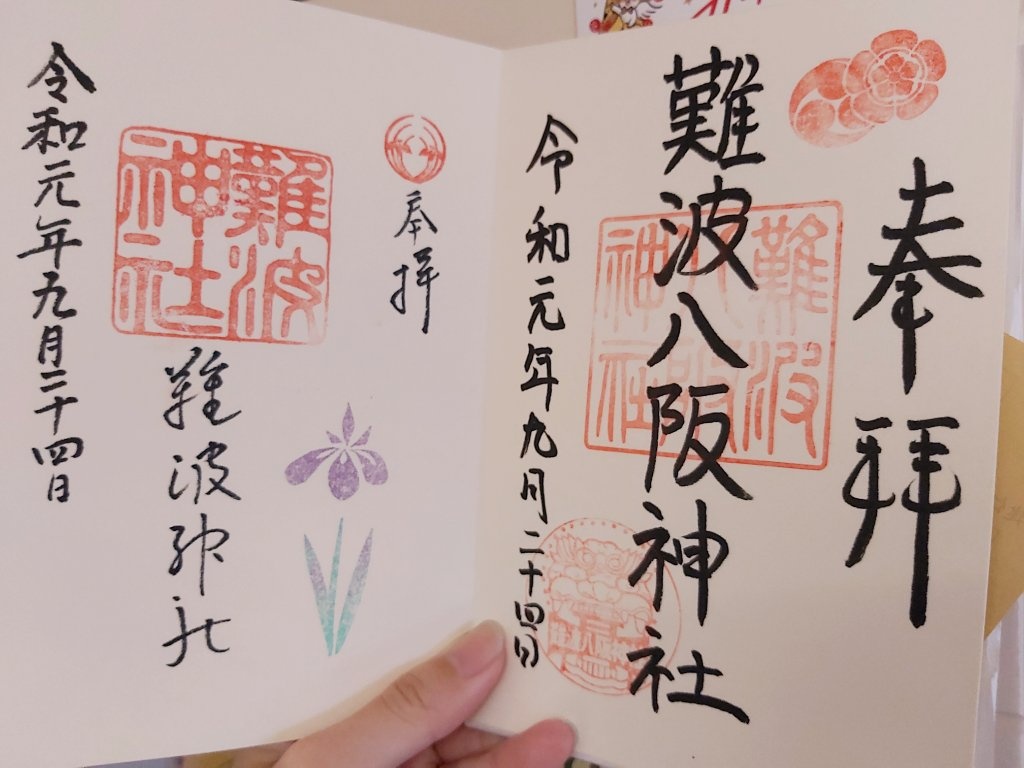 奉拝
難波八阪神社
難波八阪神社
令和元年九月二十四日
奉拝
難波神社
難波神社
令和元年九月二十四日